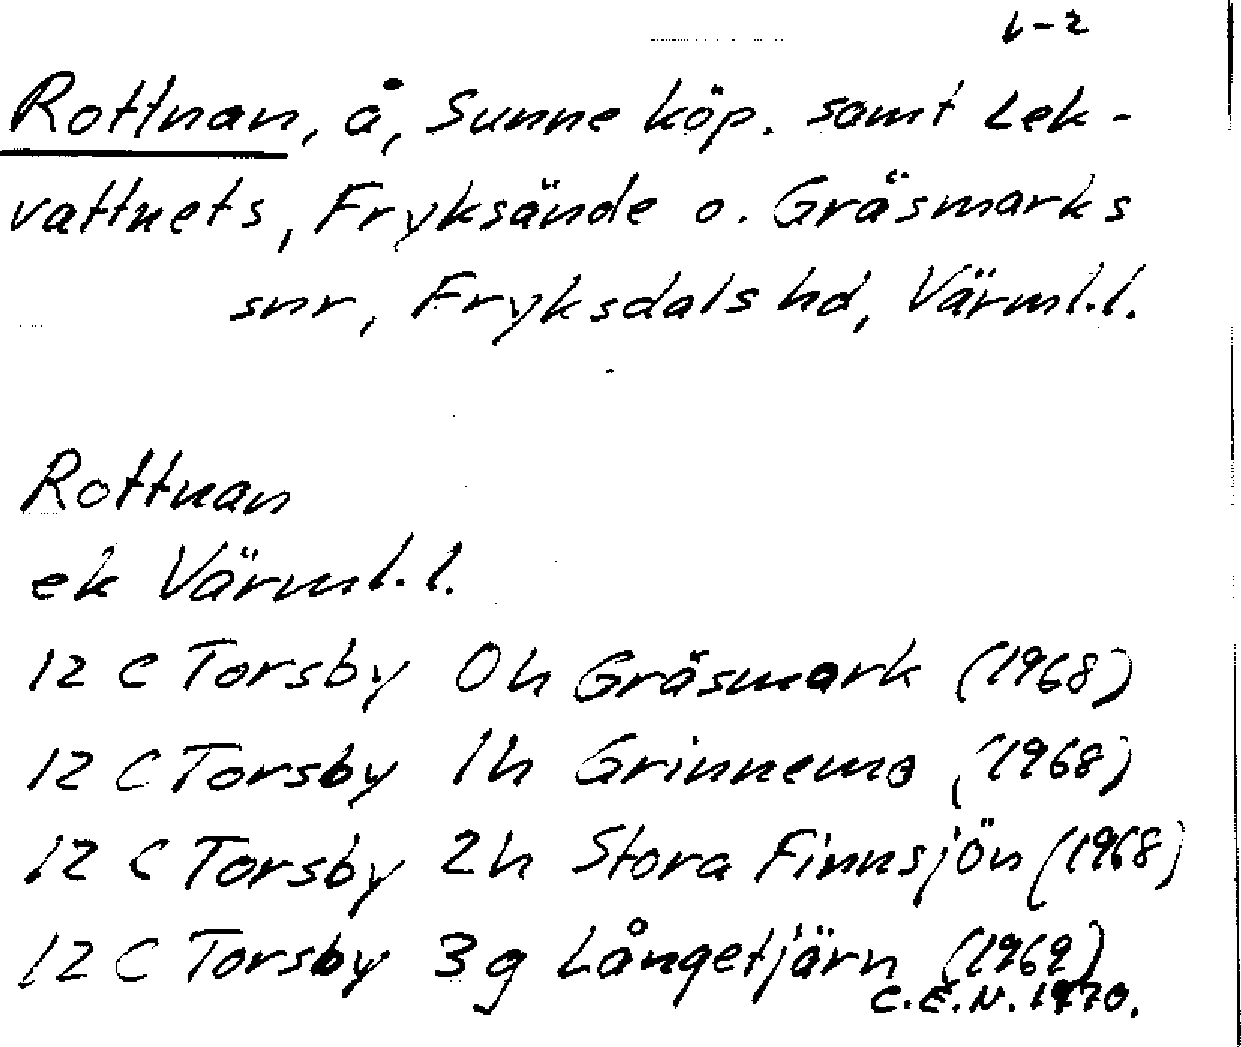 1-2
Rottnan, å, Sunne köp. samt Lek-
vattnets, Fryksände o. Gräsmarks
snr, Fryksdals hd, Värml.l.
Rottnan
ek Värml.l.
12 C Torsby 0h Gräsmark (1968)
12 C Torsby 1h Grinnemo (1968)
12 C Torsby 2h Stora Finnsjön (1968)
12 C Torsby 3g Långetjärn (1969)
C.E.N. 1970.